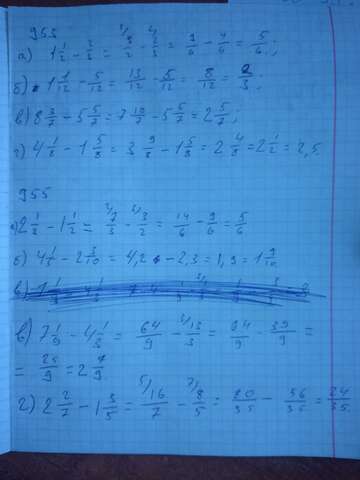 953
а) 1 1/2 - 2/3 = 3/2 - 2/3 = 9/6 - 4/6 = 5/6;
б) 1 1/12 - 5/12 = 13/12 - 5/12 = 8/12 = 2/3;
в) 8 3/7 - 5 5/7 = 7 10/7 - 5 5/7 = 2 5/7;
г) 4 1/8 - 1 5/8 = 3 9/8 - 1 5/8 = 2 4/8 = 2 1/2 = 2,5.
955
а) 2 1/3 - 1 1/2 = 7/3 - 3/2 = 14/6 - 9/6 = 5/6
б) 4 1/5 - 2 3/10 = 4,2 - 2,3 = 1,9 = 1 9/10
в) 7 1/9 - 4 1/3 = 64/9 - 13/3 = 64/9 - 39/9 =
= 25/9 = 2 7/9
г) 2 2/7 - 1 3/5 = 16/7 - 8/5 = 80/35 - 56/35 = 24/35